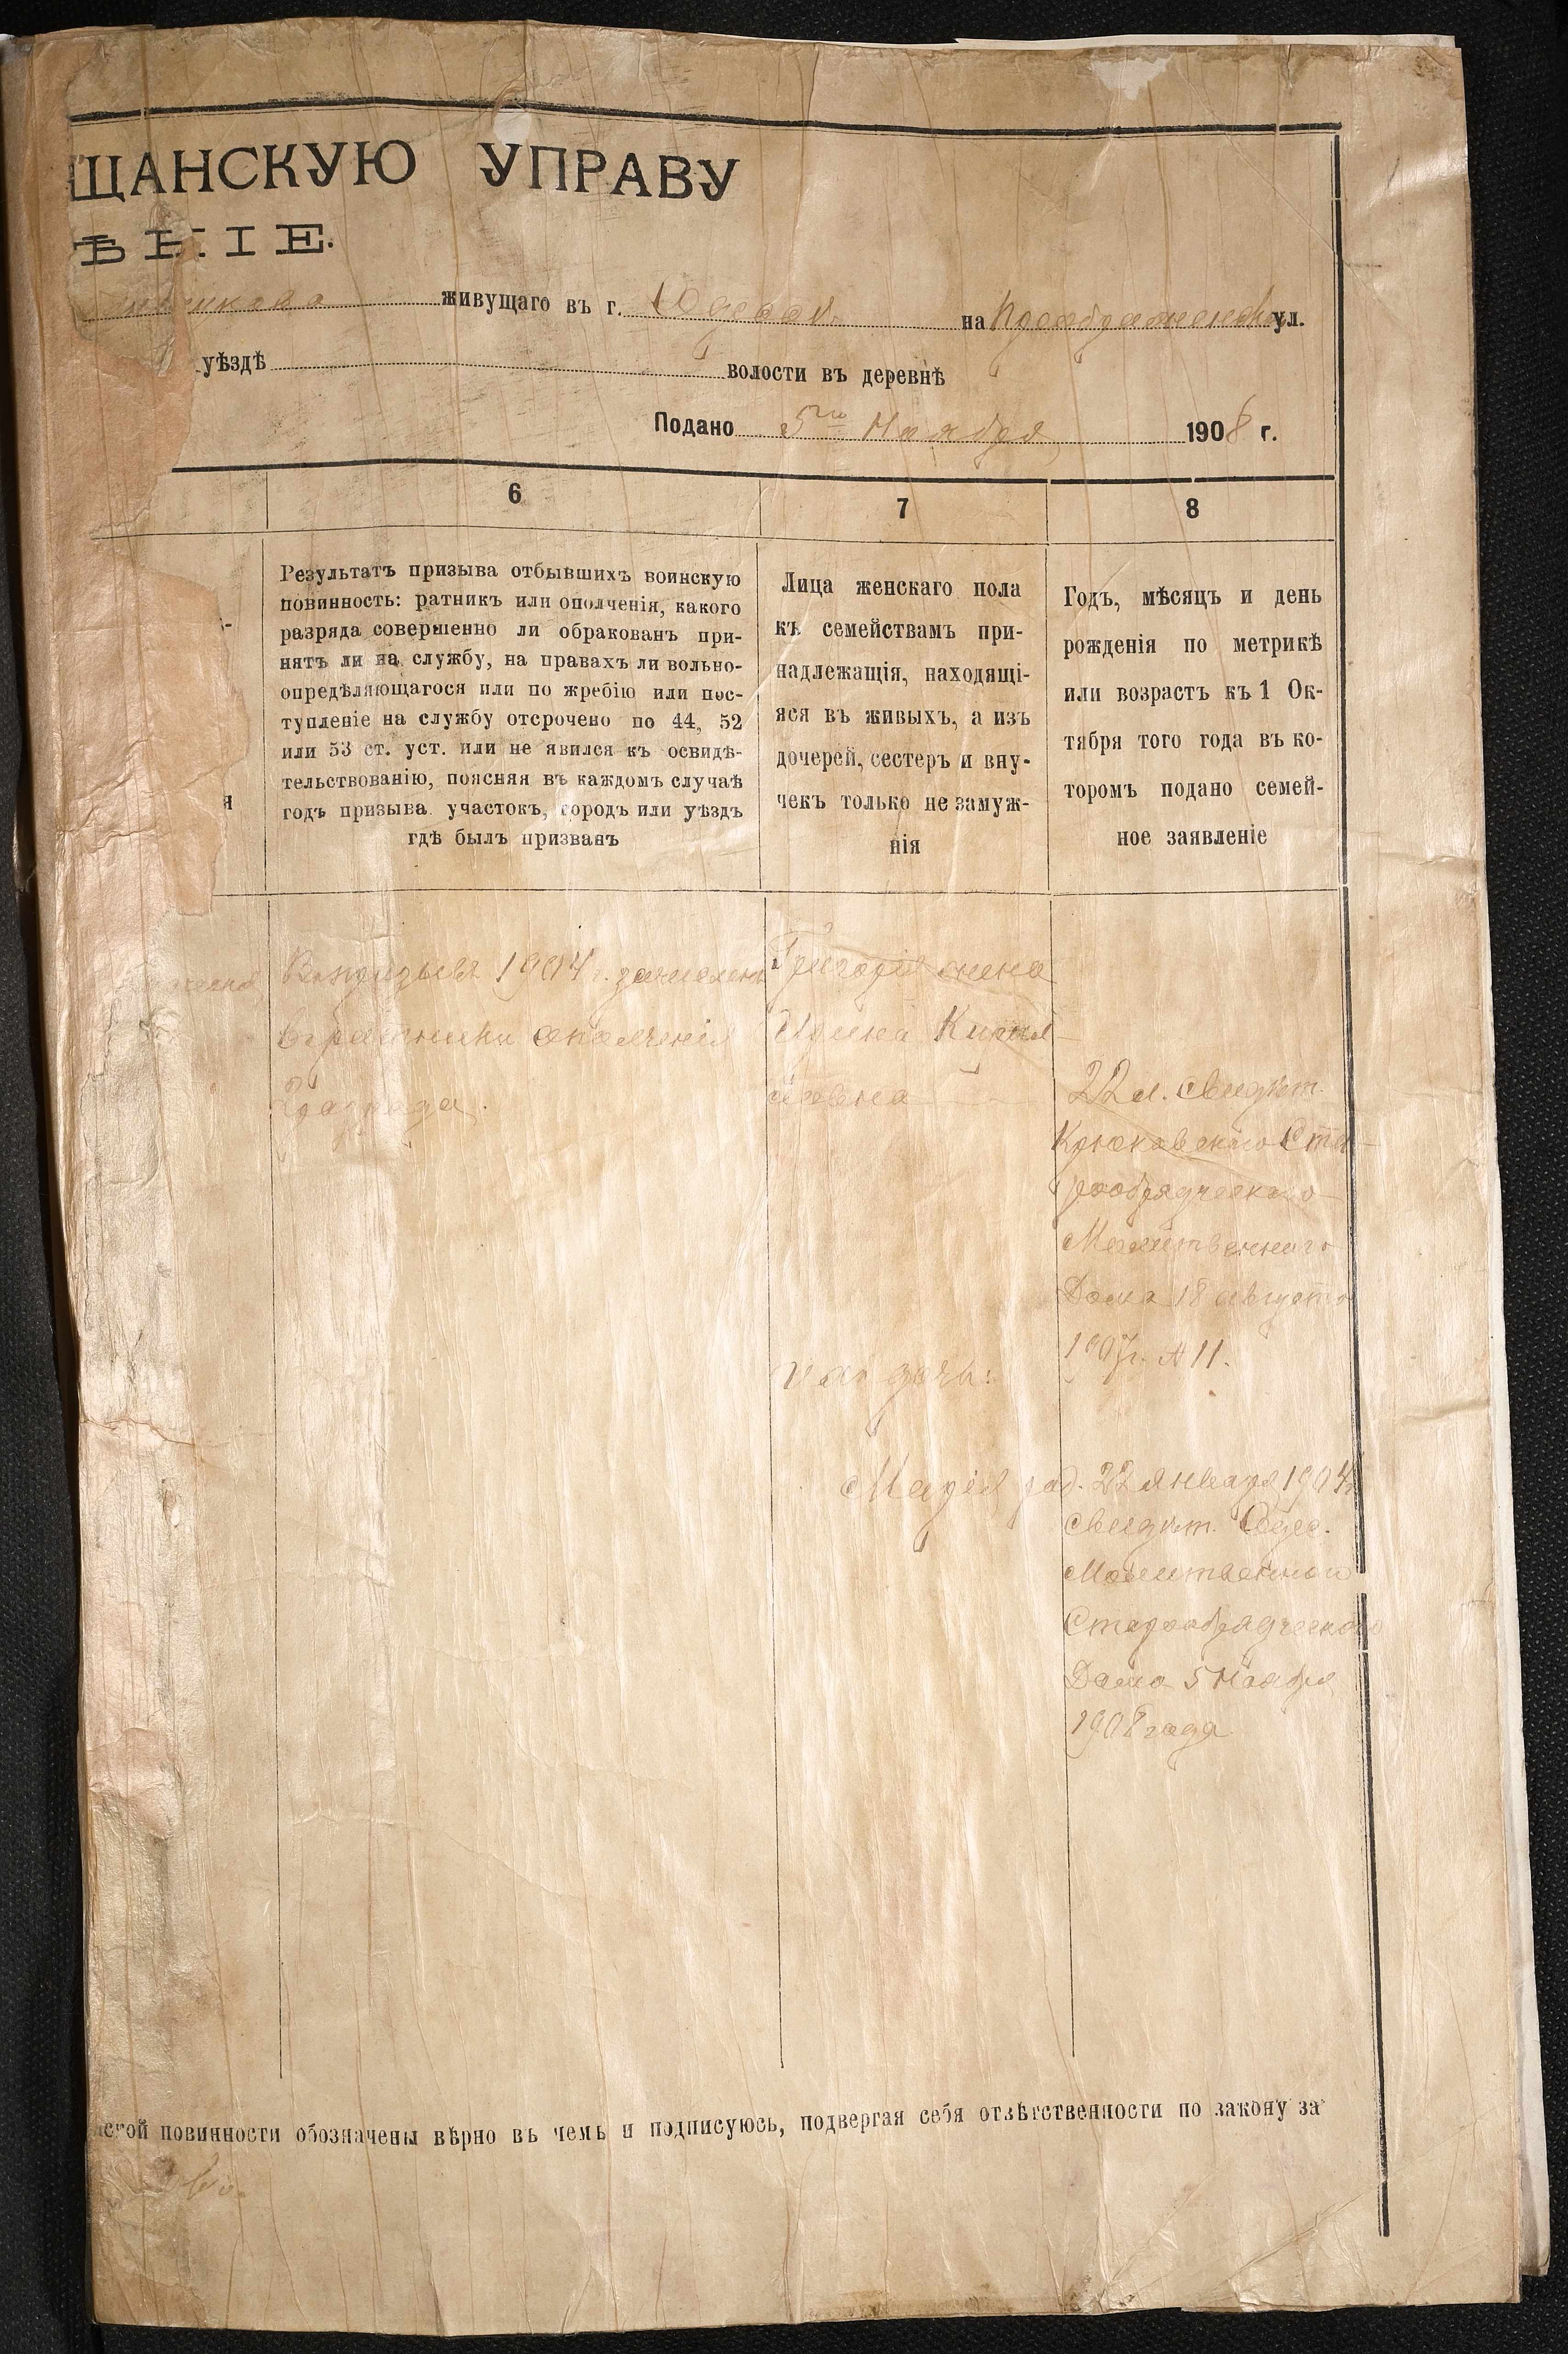 ЩАНСКУЮ УПРАВУ
ѢНІЕ.
живущаго въ г. Одессѣ на Преображенской ул.
уѣздѣ волости въ деревнѣ
Подано 5го Ноября 1908 г.
6 7 8
Результатъ призыва отбывшихъ воинскую
повинность: ратникъ или ополченія, какого
разряда совершенно ли обракованъ при-
нятъ ли на службу, на правахъ ли вольно-
опредѣляющагося или по жребію или пос-
тупленіе на службу отсрочено по 44, 52
или 53 ст. уст. или не явился къ освидѣ-
тельствованію, поясняя въ каждомъ случаѣ
годъ призыва участокъ, городъ или уѣздъ
гдѣ былъ призванъ
Лица женскаго пола
къ семействамъ при-
надлежащія, находящі-
яся въ живыхъ, а изъ
дочерей, сестеръ и вну-
чекъ только не замуж-
нія
Годъ, мѣсяцъ и день
рожденія по метрикѣ
или возрастъ къ 1 Ок-
тября того года въ ко-
торомъ подано семей-
ное заявленіе
Въ призывъ 1904 г. зачисленъ
въ ратники ополченія
2 разряда.
Григорія жена
Ирина
22 л. свидѣт.
Крюковскаго Ста-
рообрядческаго
Молитвеннаго
Дома 18 августа
1907 г. № 11.
дочь:
Марія род. 22 Января 1904 г.
свидѣт. Одес.
Молитвеннаго
Старообрядческаго
Дома 5 Ноября
1908 года
ской повинности обозначены вѣрно въ чемъ и подписуюсь, подвергая себя отвѣтственности по закону за